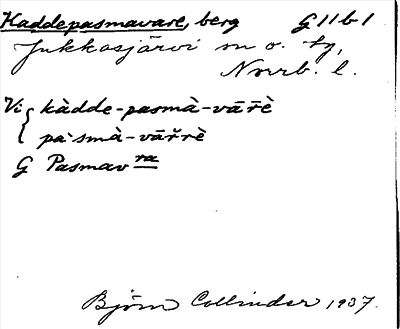 Kaddepasmavare, berg G 11 b 1
Jukkasjärvi sn o. tg,
Norrb. l.
Vi { kàdde-pasmà-vār̄è
pa·smà-vār̆rè
G Pasmav ra
Björn Collinder 1937.